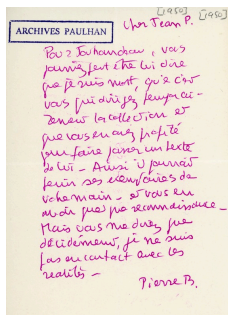 [1950] [1950]
ARCHIVES PAULHAN
Cher Jean P.
Pour Jouhandeau, vous
pourriez peut être lui dire
que je suis mort, que c'est
vous qui dirigez
la collection et
que vous en avez profité
pour faire passer un texte
de lui – Ainsi il pourrait
tenir ses exemplaires de
votre main – et vous en
avoir que reconnaissance –
Mais vous me direz que
décidément, je ne suis
pas en contact avec les
réalités –
Pierre B.